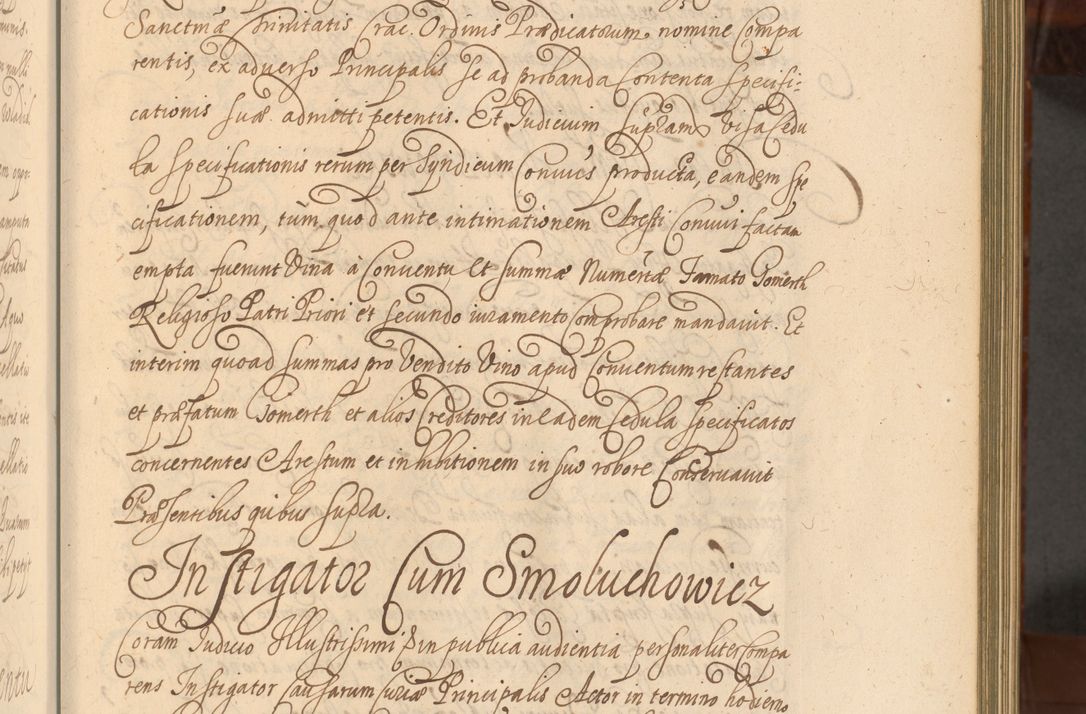 Sanctmæ Trinitatis Crac. Ordinis Prædicatorum nomine Compa
rentis, ex adverso Principalis se ad probanda Contenta specifi-
cationis suæ admitti petentis. Et Judicium supram visa Cedu
la specificationis rerum per Syndicum Convus producta, eandem spe
cificationem, tum quod ante intimationem Aresti Convui factam
empta fuerunt Vina à Conventu, Et summæ Numeratæ Famato Gomerth
Religioso Patri Priori et secundo iuramento Comprobare mandavit. Et
interim quoad summas pro Vendito Vino apud Conventum restantes
et præfatum Gomerth et alios Creditores in eadem sedula specificatos
concernentes Arestum et inhibitionem in suo robore Conservavit
Præsentibus quibus supra.
Instigator Cum Smoluchowicz
Coram Judicio Illustrissimi in publica audientia personaliter Compa
rens Instigator Causarum Curiæ Principalis Actor in termino hodierno